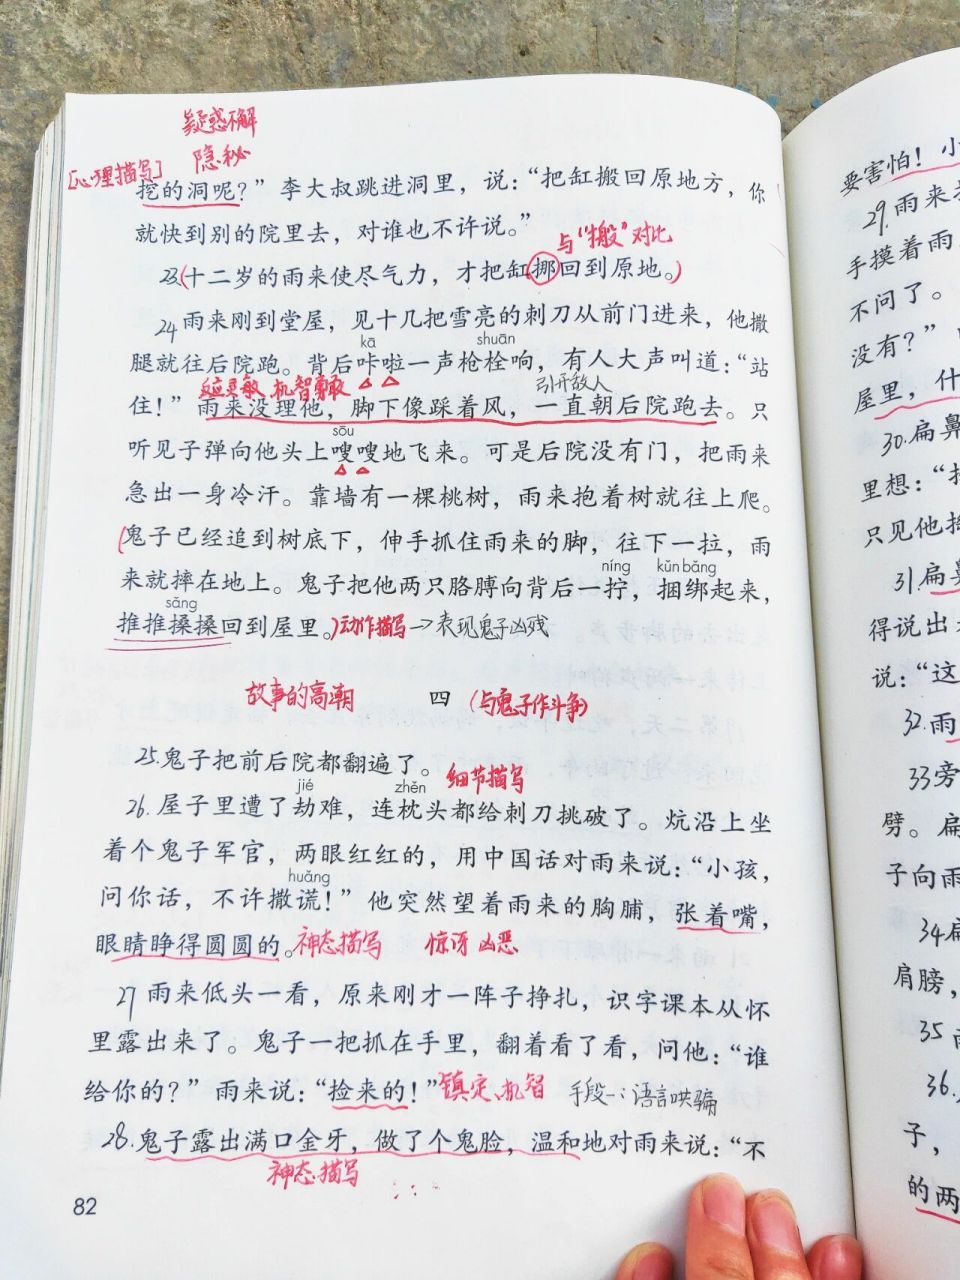 疑惑不解
[心理描写] 隐秘
挖的洞呢？”李大叔跳进洞里，说：“把缸搬回原地方，你
就快到别的院里去，对谁也不许说。”
与“搬”对比
23(十二岁的雨来使尽气力，才把缸挪回到原地。)
24 雨来刚到堂屋，见十几把雪亮的刺刀从前门进来，他撒
kā shuān
腿就往后院跑。背后咔啦一声枪栓响，有人大声叫道：“站
反应灵敏、机智勇敢 引开敌人
住！”雨来没理他，脚下像踩着风，一直朝后院跑去。只
sōu
听见子弹向他头上嗖嗖地飞来。可是后院没有门，把雨来
急出一身冷汗。靠墙有一棵桃树，雨来抱着树就往上爬。
(鬼子已经追到树底下，伸手抓住雨来的脚，往下一拉，雨
níng kǔn bǎng
来就摔在地上。鬼子把他两只胳膊向背后一拧，捆绑起来，
sǎng
推推搡搡回到屋里。)动作描写→表现鬼子凶残
故事的高潮 四 (与鬼子作斗争)
25.鬼子把前后院都翻遍了。细节描写
jié zhěn
26.屋子里遭了劫难，连枕头都给刺刀挑破了。炕沿上坐
着个鬼子军官，两眼红红的，用中国话对雨来说：“小孩，
huǎng
问你话，不许撒谎！”他突然望着雨来的胸脯，张着嘴，
眼睛睁得圆圆的。神态描写 惊讶 凶恶
27 雨来低头一看，原来刚才一阵子挣扎，识字课本从怀
里露出来了。鬼子一把抓在手里，翻着看了看，问他：“谁
给你的？”雨来说：“捡来的！”镇定、机智 手段一：语言哄骗
28.鬼子露出满口金牙，做了个鬼脸，温和地对雨来说：“不
神态描写
82
要害怕！小
29.雨来
手摸着雨
不问了。
没有？”
屋里，什
30.扁鼻
里想：“
只见他
31.扁鼻
得说出
说：“这
32.雨
33旁
劈。扁
子向雨
34扁
肩膀，
35
36.
子，
的两